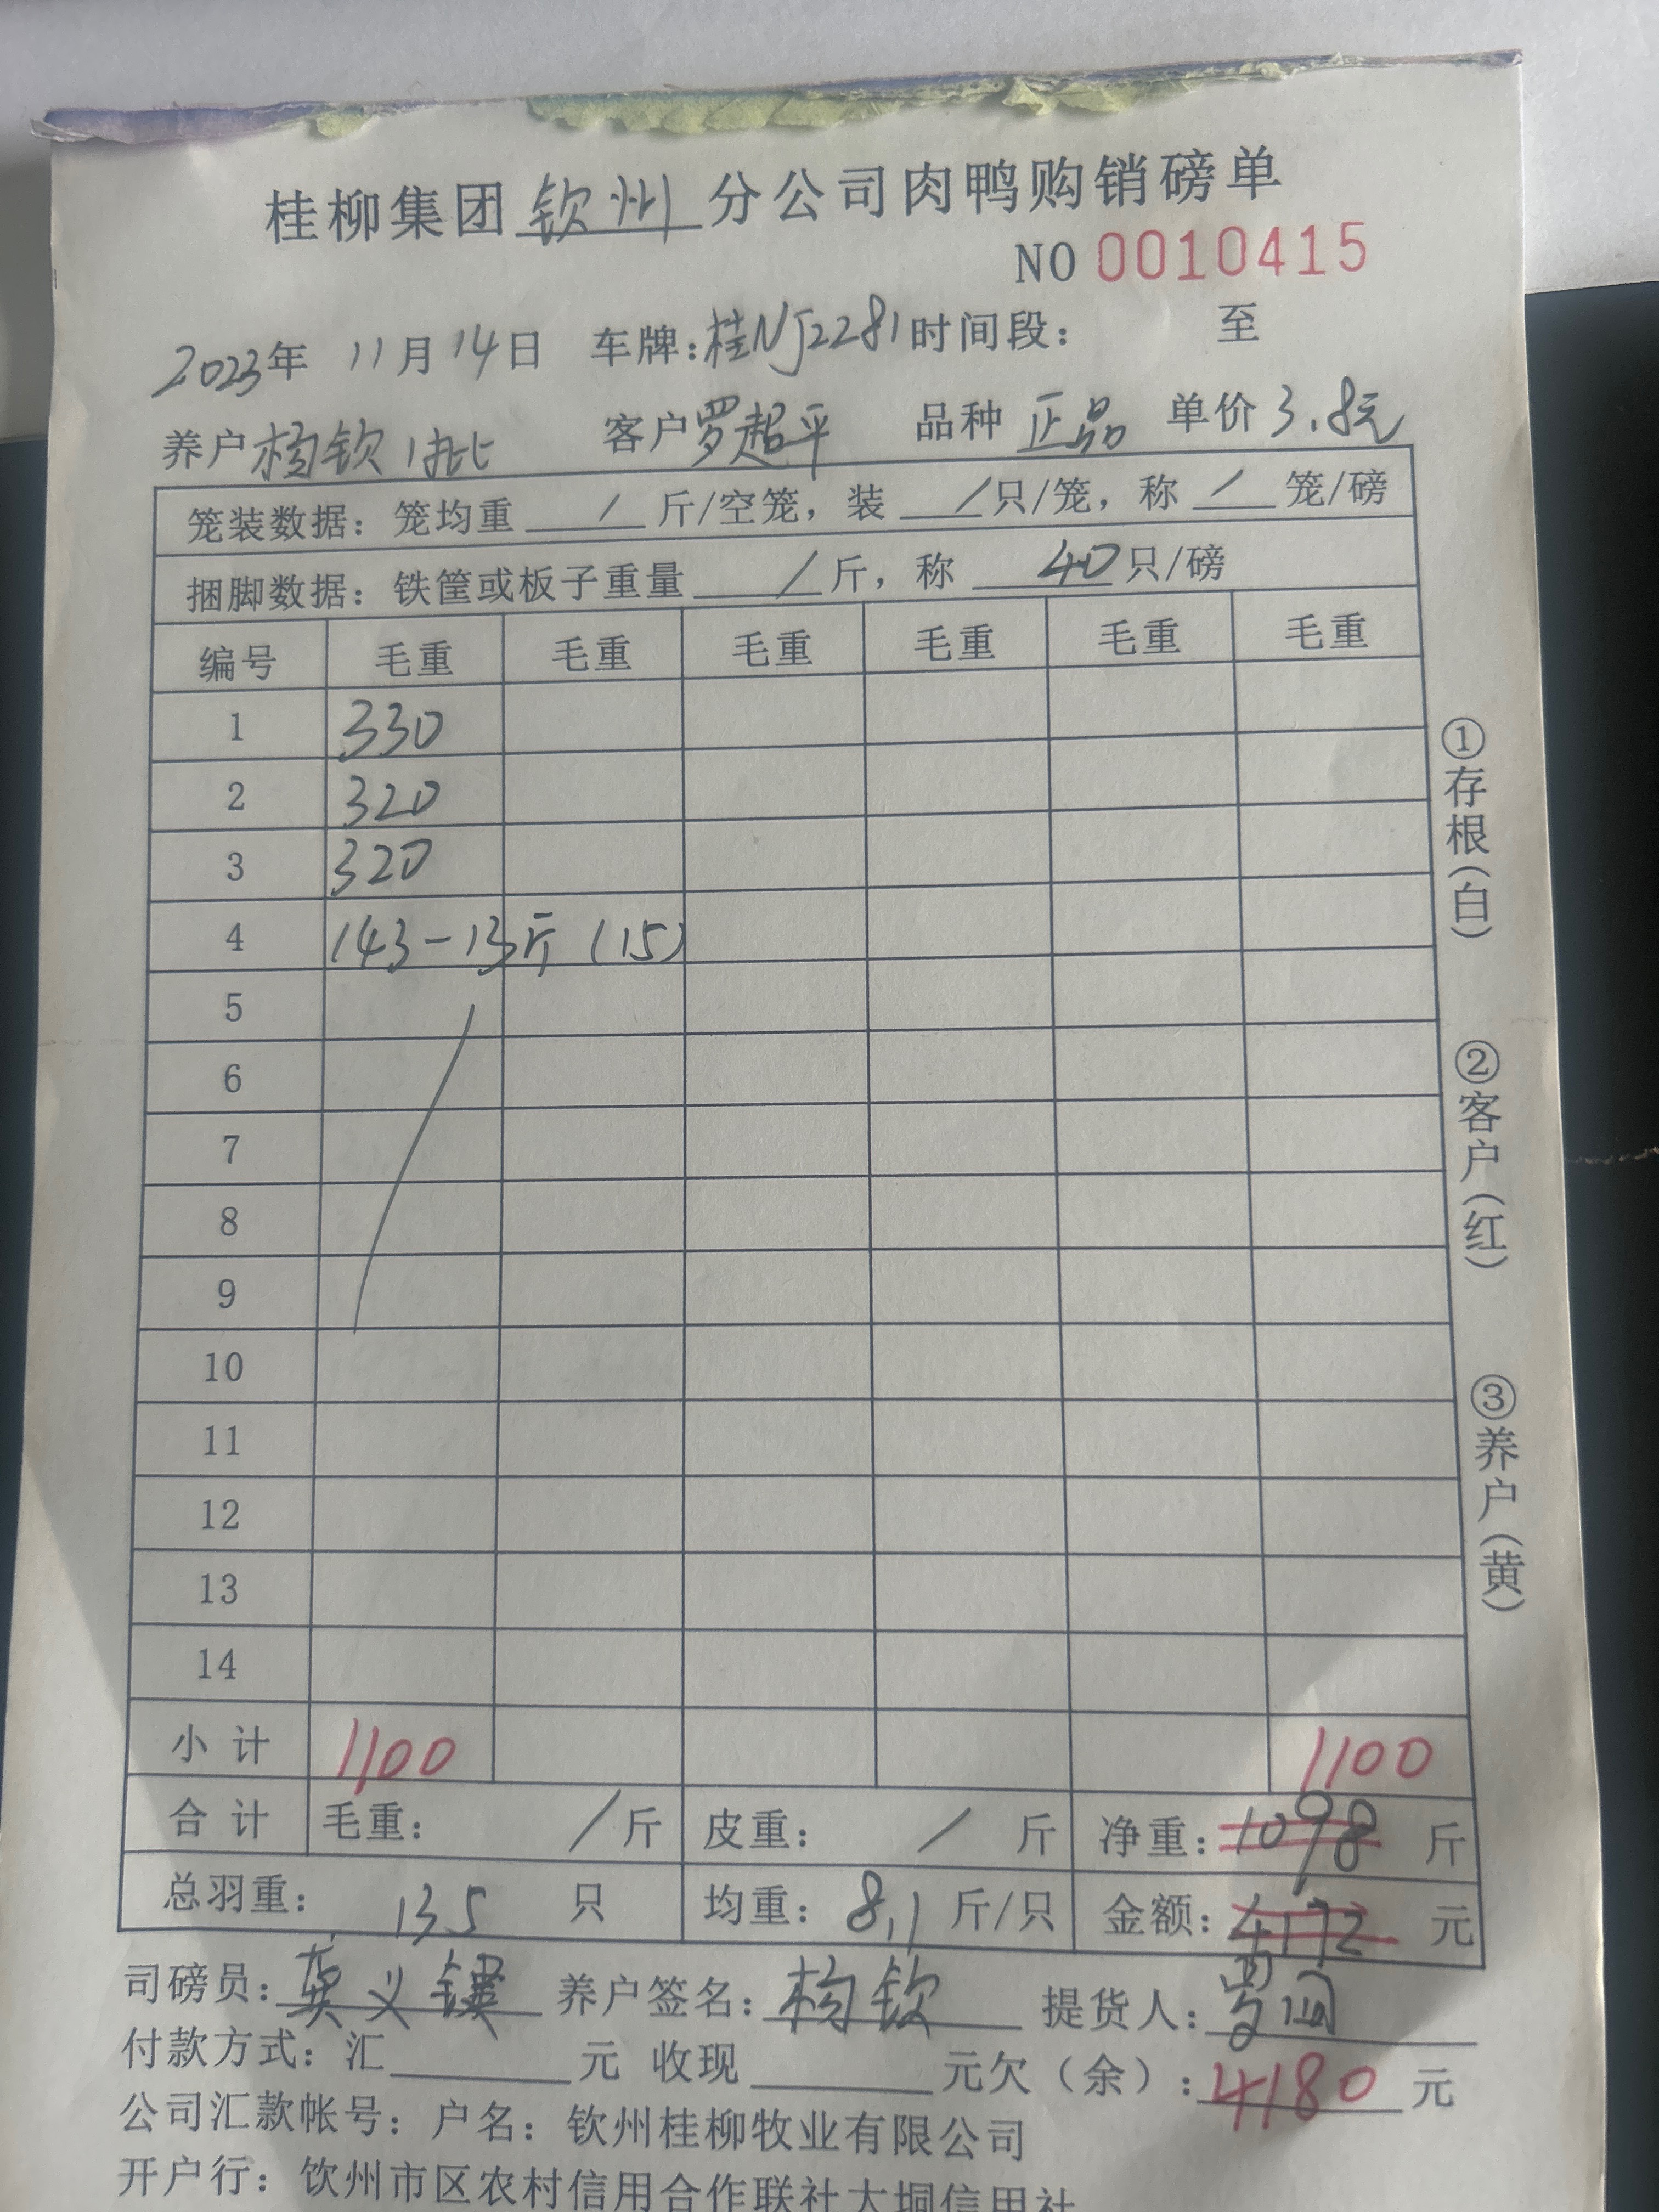 桂柳集团钦州分公司肉鸭购销磅单
NO 0010415
2023年 11月14日 车牌:桂NJ2281时间段: 至
养户杨钦1批 客户罗超平 品种 正品 单价3.8元
笼装数据: 笼均重 / 斤/空笼, 装 /只/笼, 称 / 笼/磅
捆脚数据: 铁筐或板子重量 / 斤, 称 40只/磅
编号 毛重 毛重 毛重 毛重 毛重 毛重
1 330
2 320
3 320
4 143-13斤 (15)
5
6
7
8
9
10
11
12
13
14
小计 1100 1100
合计 毛重: / 斤 皮重: / 斤 净重: 1098 斤
总羽重: 135 只 均重: 8.1 斤/只 金额: 4172 元
司磅员: 龚义 养户签名: 杨钦 提货人:
付款方式: 汇 元 收现 元欠(余): 4180 元
公司汇款帐号: 户名: 钦州桂柳牧业有限公司
开户行: 钦州市区农村信用合作联社大垌信用社
①存根(白)
②客户(红)
③养户(黄)